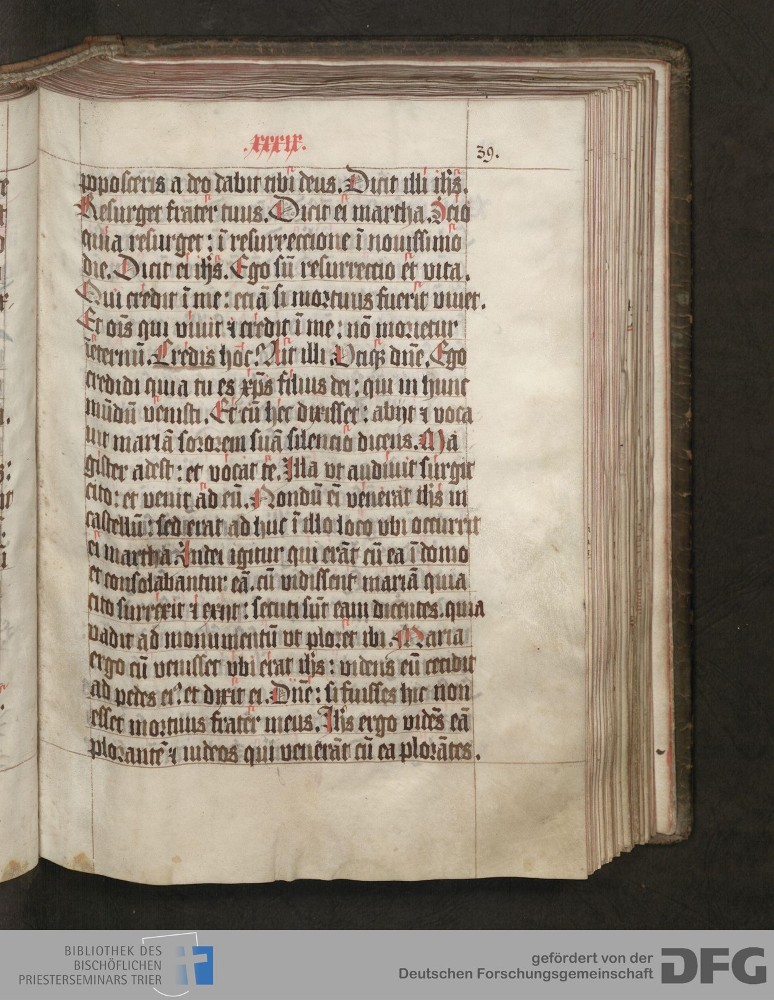 .xxxix.
39.
poposceris a deo dabit tibi deus. Dicit illi ihs̄.
Resurget frater tuus. Dicit ei martha. Scio
quia resurget: ī resurreccione ī nouissimo
die. Dicit ei ihs̄. Ego sū resurreccio et vita.
Qui credit ī me: eciā si mortuus fuerit viuet.
Et oīs qui viuit ⁊ credit ī me: nō morietur
īeternū. Credis hoc? Ait illi. Vtiqꝫ dn̄e. Ego
credidi quia tu es xp̄s filius dei: qui in hunc
mūdū venisti. Et cū hec dixisset: abijt ⁊ voca
uit mariā sororem suā silencio dicens. Ma
gister adest: et vocat te. Illa vt audiuit surgit
cito: et venit ad eū. Nondū eī venerat ihs̄ in
castellū: sed erat ad huc ī illo loco vbi occurrit
ei martha. Iudei igitur qui erāt cū ea ī domo
et consolabantur eā. cū vidissent mariā quia
cito surrexit ⁊ exijt: secuti sūt eam dicentes. quia
vadit ad monumentū vt ploret ibi. Maria
ergo cū venisset vbi erat ihs̄: videns eū cecidit
ad pedes eiꝰ. et dixit ei. Dn̄e: si fuisses hic non
esset mortuus frater meus. Ihs̄ ergo vidēs eā
plorantē ⁊ iudeos qui venerāt cū ea plorātes.
BIBLIOTHEK DES
BISCHÖFLICHEN
PRIESTERSEMINARS TRIER
gefördert von der
Deutschen Forschungsgemeinschaft
DFG